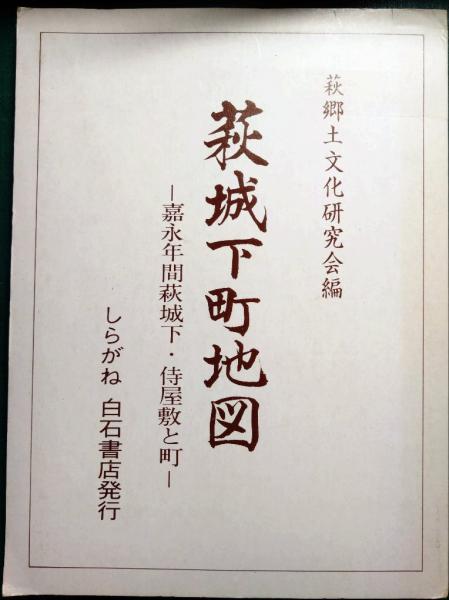 萩郷土文化研究会編
萩城下町地図
―嘉永年間萩城下・侍屋敷と町―
しらがね 白石書店発行